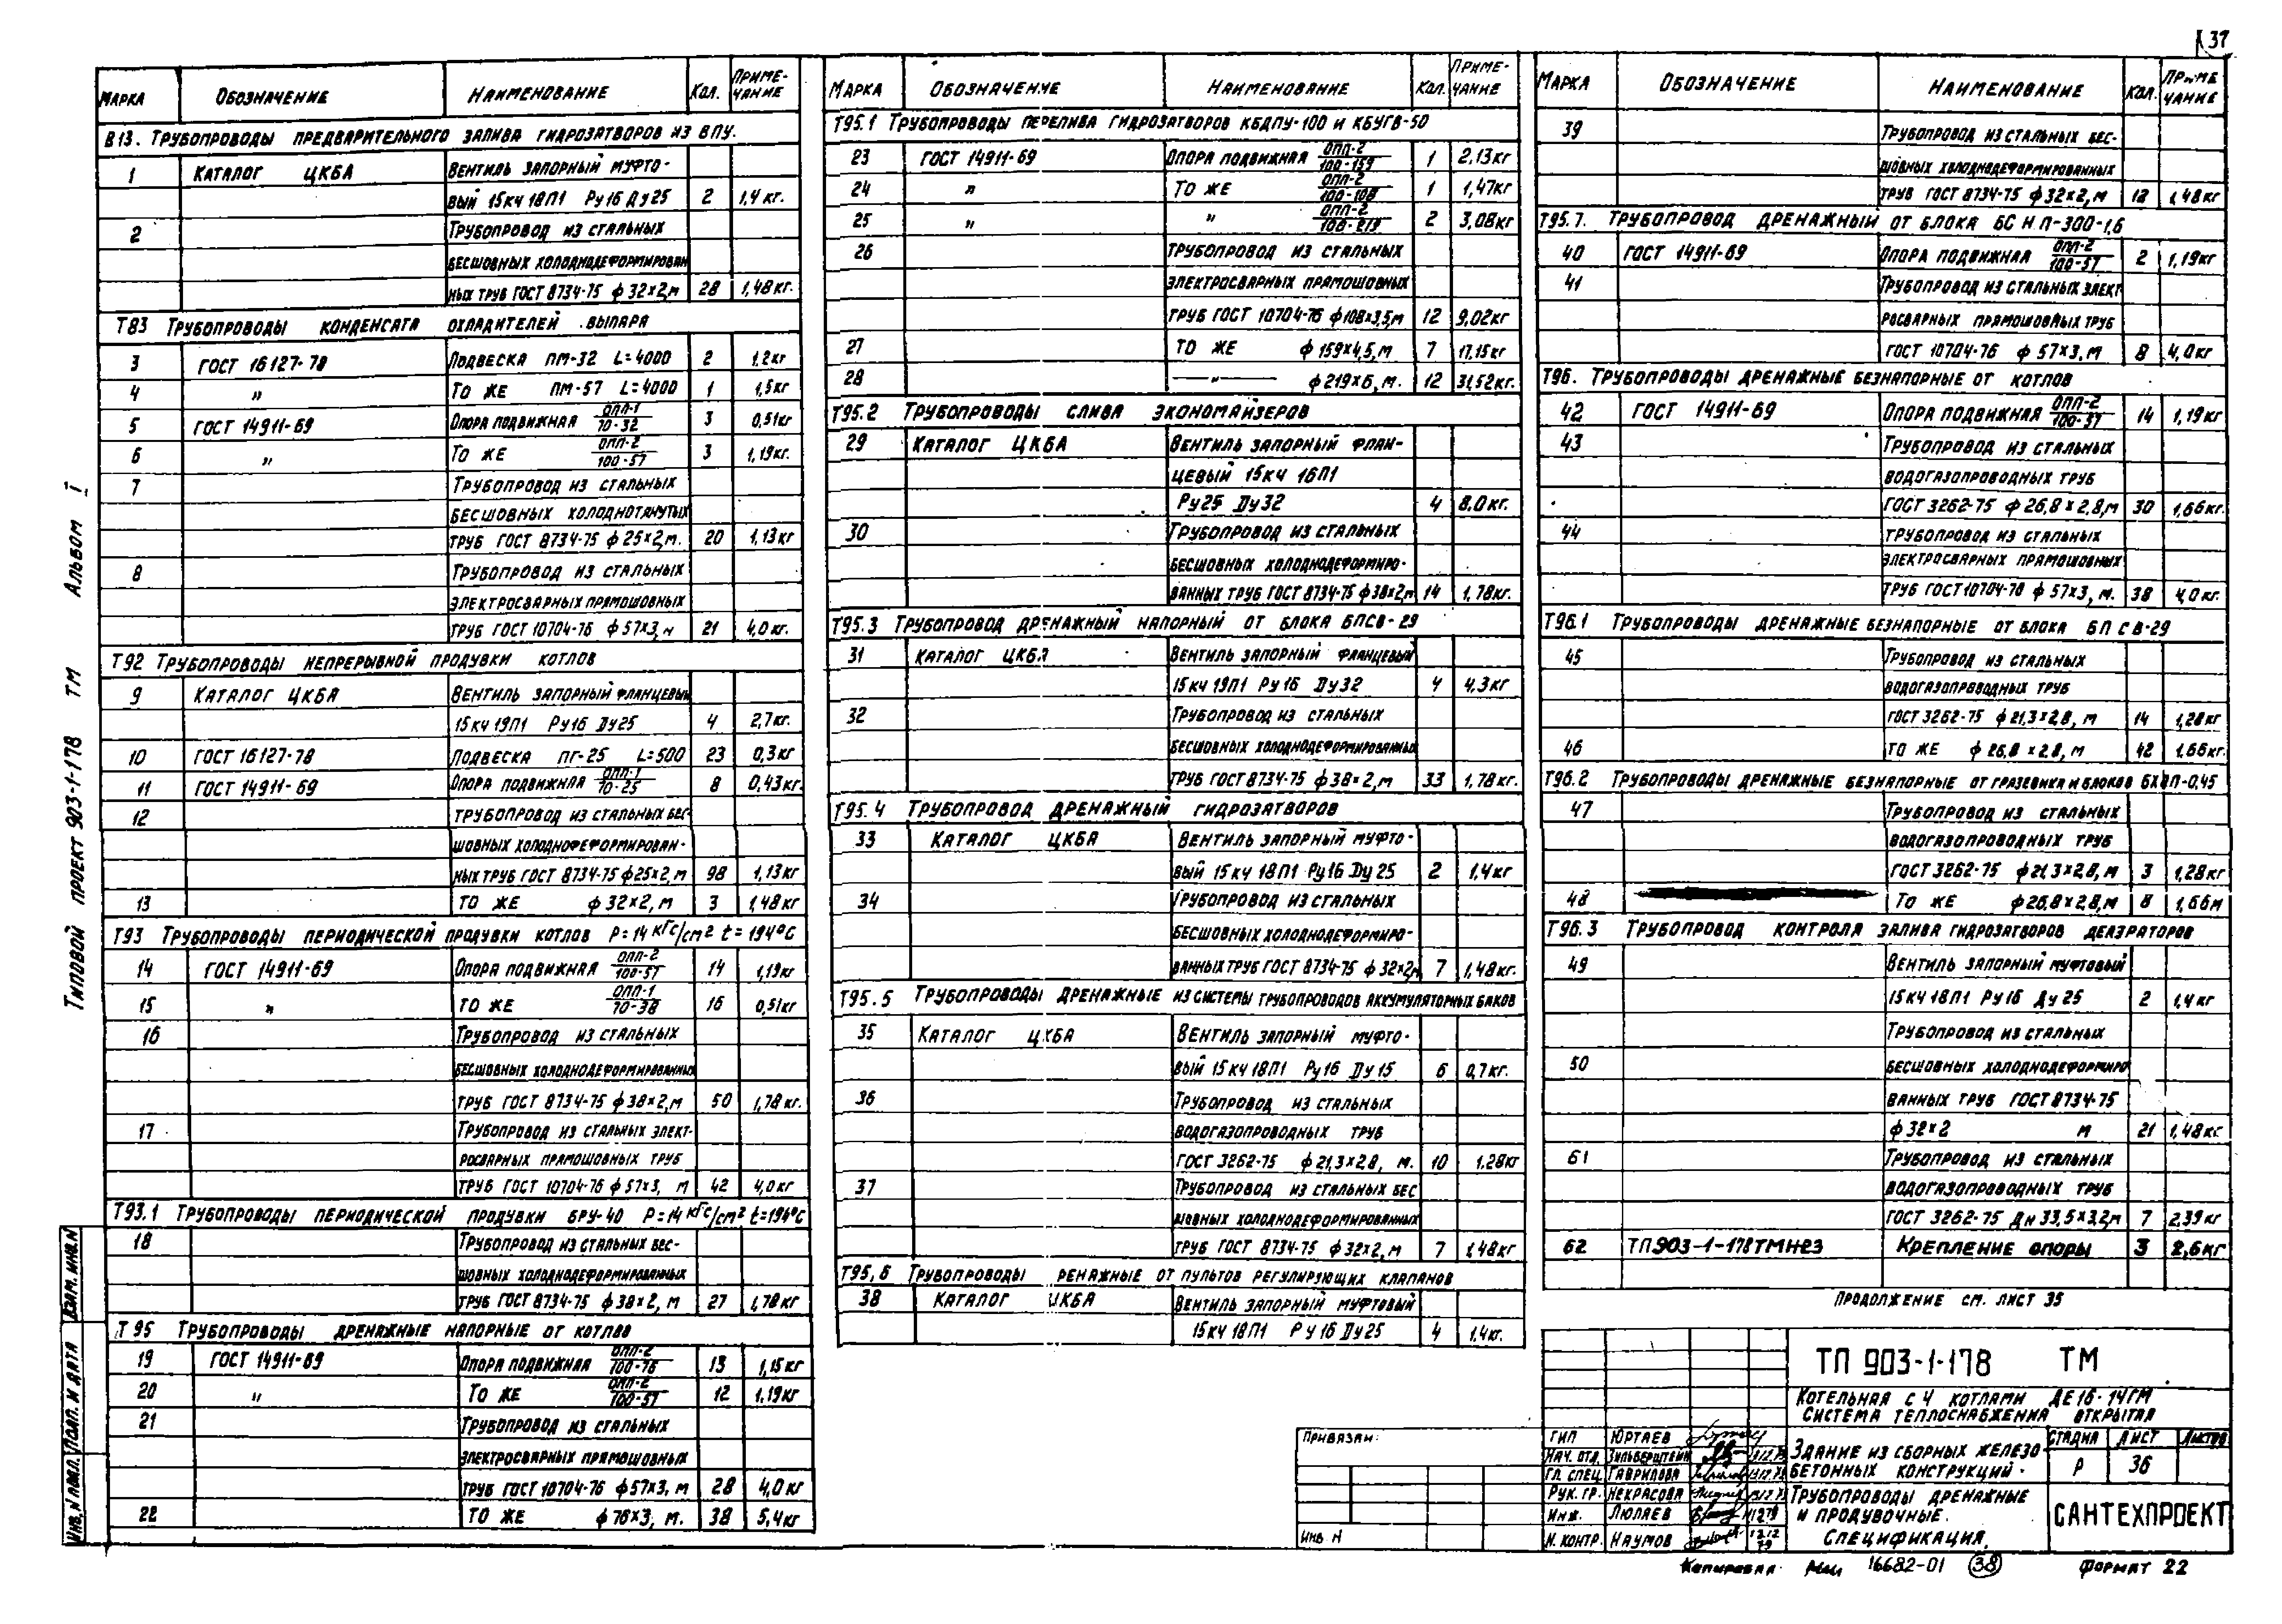 37
МАРКА ОБОЗНАЧЕНИЕ НАИМЕНОВАНИЕ КОЛ. ПРИМЕ-
ЧАНИЕ
В13. ТРУБОПРОВОДЫ ПРЕДВАРИТЕЛЬНОГО ЗАЛИВА ГИДРОЗАТВОРОВ ИЗ ВПУ.
1 КАТАЛОГ ЦКБА ВЕНТИЛЬ ЗАПОРНЫЙ МУФТО-
ВЫЙ 15КЧ 18П1 РУ16 ДУ25 2 1,4 КГ.
2 ТРУБОПРОВОД ИЗ СТАЛЬНЫХ
БЕСШОВНЫХ ХОЛОДНОДЕФОРМИРОВАН
НЫХ ТРУБ ГОСТ 8734-75 ф 32×2, М 28 1,48 КГ.
Т83 ТРУБОПРОВОДЫ КОНДЕНСАТА ОХЛАДИТЕЛЕЙ ВЫПАРА
3 ГОСТ 16127-78 ПОДВЕСКА ПМ-32 L=4000 2 1,2 КГ
4 " ТО ЖЕ ПМ-57 L=4000 1 1,5 КГ
5 ГОСТ 14911-69 ОПОРА ПОДВИЖНАЯ ОПП-1/70-32 3 0,51 КГ
6 " ТО ЖЕ ОПП-2/100-57 3 1,19 КГ.
7 ТРУБОПРОВОД ИЗ СТАЛЬНЫХ
БЕСШОВНЫХ ХОЛОДНОТЯНУТЫХ
ТРУБ ГОСТ 8734-75 ф 25×2, М. 20 1,13 КГ
8 ТРУБОПРОВОД ИЗ СТАЛЬНЫХ
ЭЛЕКТРОСВАРНЫХ ПРЯМОШОВНЫХ
ТРУБ ГОСТ 10704-76 ф 57×3, М 21 4,0 КГ.
Т92 ТРУБОПРОВОДЫ НЕПРЕРЫВНОЙ ПРОДУВКИ КОТЛОВ
9 КАТАЛОГ ЦКБА ВЕНТИЛЬ ЗАПОРНЫЙ ФЛАНЦЕВЫЙ
15КЧ 19П1 РУ16 ДУ25 4 2,7 КГ.
10 ГОСТ 16127-78 ПОДВЕСКА ПГ-25 L=500 23 0,3 КГ
11 ГОСТ 14911-69 ОПОРА ПОДВИЖНАЯ ОПП-1/70-25 8 0,43 КГ.
12 ТРУБОПРОВОД ИЗ СТАЛЬНЫХ БЕС-
ШОВНЫХ ХОЛОДНОДЕФОРМИРОВАН-
НЫХ ТРУБ ГОСТ 8734-75 ф 25×2, М 98 1,13 КГ
13 ТО ЖЕ ф 32×2, М 3 1,48 КГ
Т93 ТРУБОПРОВОДЫ ПЕРИОДИЧЕСКОЙ ПРОДУВКИ КОТЛОВ Р=14 КГС/СМ² t=194°С
14 ГОСТ 14911-69 ОПОРА ПОДВИЖНАЯ ОПП-2/100-57 14 1,19 КГ
15 " ТО ЖЕ ОПП-1/70-38 16 0,51 КГ
16 ТРУБОПРОВОД ИЗ СТАЛЬНЫХ
БЕСШОВНЫХ ХОЛОДНОДЕФОРМИРОВАННЫХ
ТРУБ ГОСТ 8734-75 ф 38×2, М 50 1,78 КГ.
17 ТРУБОПРОВОД ИЗ СТАЛЬНЫХ ЭЛЕКТ-
РОСВАРНЫХ ПРЯМОШОВНЫХ ТРУБ
ТРУБ ГОСТ 10704-76 ф 57×3, М 42 4,0 КГ
Т93.1 ТРУБОПРОВОДЫ ПЕРИОДИЧЕСКОЙ ПРОДУВКИ БРУ-40 Р=14 КГС/СМ² t=194°С
18 ТРУБОПРОВОД ИЗ СТАЛЬНЫХ БЕС-
ШОВНЫХ ХОЛОДНОДЕФОРМИРОВАННЫХ
ТРУБ ГОСТ 8734-75 ф 38×2, М 27 1,78 КГ
Т95 ТРУБОПРОВОДЫ ДРЕНАЖНЫЕ НАПОРНЫЕ ОТ КОТЛОВ
19 ГОСТ 14911-69 ОПОРА ПОДВИЖНАЯ ОПП-2/100-76 13 1,15 КГ
20 " ТО ЖЕ ОПП-2/100-57 12 1,19 КГ
21 ТРУБОПРОВОД ИЗ СТАЛЬНЫХ
ЭЛЕКТРОСВАРНЫХ ПРЯМОШОВНЫХ
ТРУБ ГОСТ 10704-76 ф 57×3, М 28 4,0 КГ
22 ТО ЖЕ ф 76×3, М. 38 5,4 КГ
МАРКА ОБОЗНАЧЕНИЕ НАИМЕНОВАНИЕ КОЛ. ПРИМЕ-
ЧАНИЕ
Т95.1 ТРУБОПРОВОДЫ ПЕРЕЛИВА ГИДРОЗАТВОРОВ КБДПУ-100 И КБУГВ-50
23 ГОСТ 14911-69 ОПОРА ПОДВИЖНАЯ ОПП-2/100-159 1 2,13 КГ
24 " ТО ЖЕ ОПП-2/100-108 1 1,47 КГ
25 " " ОПП-2/100-219 2 3,08 КГ
26 ТРУБОПРОВОД ИЗ СТАЛЬНЫХ
ЭЛЕКТРОСВАРНЫХ ПРЯМОШОВНЫХ
ТРУБ ГОСТ 10704-76 ф 108×3,5, М 12 9,02 КГ
27 ТО ЖЕ ф 159×4,5, М 7 17,15 КГ
28 —"— ф 219×6, М. 12 31,52 КГ.
Т95.2 ТРУБОПРОВОДЫ СЛИВА ЭКОНОМАЙЗЕРОВ
29 КАТАЛОГ ЦКБА ВЕНТИЛЬ ЗАПОРНЫЙ ФЛАН-
ЦЕВЫЙ 15КЧ 16П1
РУ25 ДУ32 4 8,0 КГ.
30 ТРУБОПРОВОД ИЗ СТАЛЬНЫХ
БЕСШОВНЫХ ХОЛОДНОДЕФОРМИРО-
ВАННЫХ ТРУБ ГОСТ 8734-75 ф 38×2, М 14 1,78 КГ.
Т95.3 ТРУБОПРОВОД ДРЕНАЖНЫЙ НАПОРНЫЙ ОТ БЛОКА БПСВ-29
31 КАТАЛОГ ЦКБА ВЕНТИЛЬ ЗАПОРНЫЙ ФЛАНЦЕВЫЙ
15КЧ 19П1 РУ16 ДУ32 4 4,3 КГ
32 ТРУБОПРОВОД ИЗ СТАЛЬНЫХ
БЕСШОВНЫХ ХОЛОДНОДЕФОРМИРОВАННЫХ
ТРУБ ГОСТ 8734-75 ф 38×2, М 33 1,78 КГ.
Т95.4 ТРУБОПРОВОД ДРЕНАЖНЫЙ ГИДРОЗАТВОРОВ
33 КАТАЛОГ ЦКБА ВЕНТИЛЬ ЗАПОРНЫЙ МУФТО-
ВЫЙ 15КЧ 18П1 РУ16 ДУ25 2 1,4 КГ
34 ТРУБОПРОВОД ИЗ СТАЛЬНЫХ
БЕСШОВНЫХ ХОЛОДНОДЕФОРМИРО-
ВАННЫХ ТРУБ ГОСТ 8734-75 ф 32×2, М 7 1,48 КГ.
Т95.5 ТРУБОПРОВОДЫ ДРЕНАЖНЫЕ ИЗ СИСТЕМЫ ТРУБОПРОВОДОВ АККУМУЛЯТОРНЫХ БАКОВ
35 КАТАЛОГ ЦКБА ВЕНТИЛЬ ЗАПОРНЫЙ МУФТО-
ВЫЙ 15КЧ 18П1 РУ16 ДУ15 6 0,7 КГ.
36 ТРУБОПРОВОД ИЗ СТАЛЬНЫХ
ВОДОГАЗОПРОВОДНЫХ ТРУБ
ГОСТ 3262-75 ф 21,3×2,8, М. 10 1,28 КГ
37 ТРУБОПРОВОД ИЗ СТАЛЬНЫХ БЕС
ШОВНЫХ ХОЛОДНОДЕФОРМИРОВАННЫХ
ТРУБ ГОСТ 8734-75 ф 32×2, М 7 1,48 КГ
Т95,6 ТРУБОПРОВОДЫ РЕНАЖНЫЕ ОТ ПУЛЬТОВ РЕГУЛИРУЮЩИХ КЛАПАНОВ
38 КАТАЛОГ ЦКБА ВЕНТИЛЬ ЗАПОРНЫЙ МУФТОВЫЙ
15КЧ 18П1 РУ16 ДУ25 4 1,4 КГ.
МАРКА ОБОЗНАЧЕНИЕ НАИМЕНОВАНИЕ КОЛ. ПРИМЕ
ЧАНИЕ
39 ТРУБОПРОВОД ИЗ СТАЛЬНЫХ БЕС-
ШОВНЫХ ХОЛОДНОДЕФОРМИРОВАННЫХ
ТРУБ ГОСТ 8734-75 ф 32×2, М 12 1,48 КГ
Т95.7. ТРУБОПРОВОД ДРЕНАЖНЫЙ ОТ БЛОКА БСНП-300-1,6
40 ГОСТ 14911-69 ОПОРА ПОДВИЖНАЯ ОПП-2/100-57 2 1,19 КГ
41 ТРУБОПРОВОД ИЗ СТАЛЬНЫХ ЭЛЕКТ
РОСВАРНЫХ ПРЯМОШОВНЫХ ТРУБ
ГОСТ 10704-76 ф 57×3, М 8 4,0 КГ
Т96. ТРУБОПРОВОДЫ ДРЕНАЖНЫЕ БЕЗНАПОРНЫЕ ОТ КОТЛОВ
42 ГОСТ 14911-69 ОПОРА ПОДВИЖНАЯ ОПП-2/100-57 14 1,19 КГ
43 ТРУБОПРОВОД ИЗ СТАЛЬНЫХ
ВОДОГАЗОПРОВОДНЫХ ТРУБ
ГОСТ 3262-75 ф 26,8×2,8, М 30 1,66 КГ.
44 ТРУБОПРОВОД ИЗ СТАЛЬНЫХ
ЭЛЕКТРОСВАРНЫХ ПРЯМОШОВНЫХ
ТРУБ ГОСТ 10704-76 ф 57×3, М. 38 4,0 КГ
Т96.1 ТРУБОПРОВОДЫ ДРЕНАЖНЫЕ БЕЗНАПОРНЫЕ ОТ БЛОКА БПСВ-29
45 ТРУБОПРОВОД ИЗ СТАЛЬНЫХ
ВОДОГАЗОПРОВОДНЫХ ТРУБ
ГОСТ 3262-75 ф 21,3×2,8, М 14 1,28 КГ
46 ТО ЖЕ ф 26,8×2,8, М 42 1,66 КГ.
Т96.2 ТРУБОПРОВОДЫ ДРЕНАЖНЫЕ БЕЗНАПОРНЫЕ ОТ ГРЯЗЕВИКА И БЛОКОВ
47 ТРУБОПРОВОД ИЗ СТАЛЬНЫХ
ВОДОГАЗОПРОВОДНЫХ ТРУБ
ГОСТ 3262-75 ф 21,3×2,8, М 3 1,28 КГ
48 ТО ЖЕ ф 26,8×2,8, М 8 1,66 М
Т96.3 ТРУБОПРОВОД КОНТРОЛЯ ЗАЛИВА ГИДРОЗАТВОРОВ ДЕАЭРАТОРОВ
49 ВЕНТИЛЬ ЗАПОРНЫЙ МУФТОВЫЙ
15КЧ 18П1 РУ16 ДУ25 2 1,4 КГ
ТРУБОПРОВОД ИЗ СТАЛЬНЫХ
50 БЕСШОВНЫХ ХОЛОДНОДЕФОРМИРО
ВАННЫХ ТРУБ ГОСТ 8734-75
ф 32×2 М 21 1,48 КГ
61 ТРУБОПРОВОД ИЗ СТАЛЬНЫХ
ВОДОГАЗОПРОВОДНЫХ ТРУБ
ГОСТ 3262-75 ДН 33,5×3,2, М 7 2,39 КГ
62 ТП903-1-178ТМН23 КРЕПЛЕНИЕ ОПОРЫ 3 2,6 КГ
ПРОДОЛЖЕНИЕ СМ. ЛИСТ 35
ТП 903-1-178 ТМ
КОТЕЛЬНАЯ С 4 КОТЛАМИ ДЕ16-14ГМ
СИСТЕМА ТЕПЛОСНАБЖЕНИЯ ОТКРЫТАЯ
ПРИВЯЗАН:
ИНВ. N
ГИП ЮРТАЕВ
НАЧ. ОТД. ЗИЛЬБЕРШТЕЙН
ГЛ. СПЕЦ. ГАВРИЛОВА
РУК. ГР. НЕКРАСОВА
ИНЖ. ЛЮЛЯЕВ
Н. КОНТР. НАУМОВ
ЗДАНИЕ ИЗ СБОРНЫХ ЖЕЛЕЗО-
БЕТОННЫХ КОНСТРУКЦИЙ.
СТАДИЯ ЛИСТ ЛИСТОВ
Р 36
ТРУБОПРОВОДЫ ДРЕНАЖНЫЕ
И ПРОДУВОЧНЫЕ.
СПЕЦИФИКАЦИЯ.
САНТЕХПРОЕКТ
КОПИРОВАЛ 16682-01 38 ФОРМАТ 22
ТИПОВОЙ ПРОЕКТ 903-1-178 ТМ АЛЬБОМ I
ИНВ. N ПОДЛ. ПОДП. И ДАТА ВЗАМ. ИНВ. N